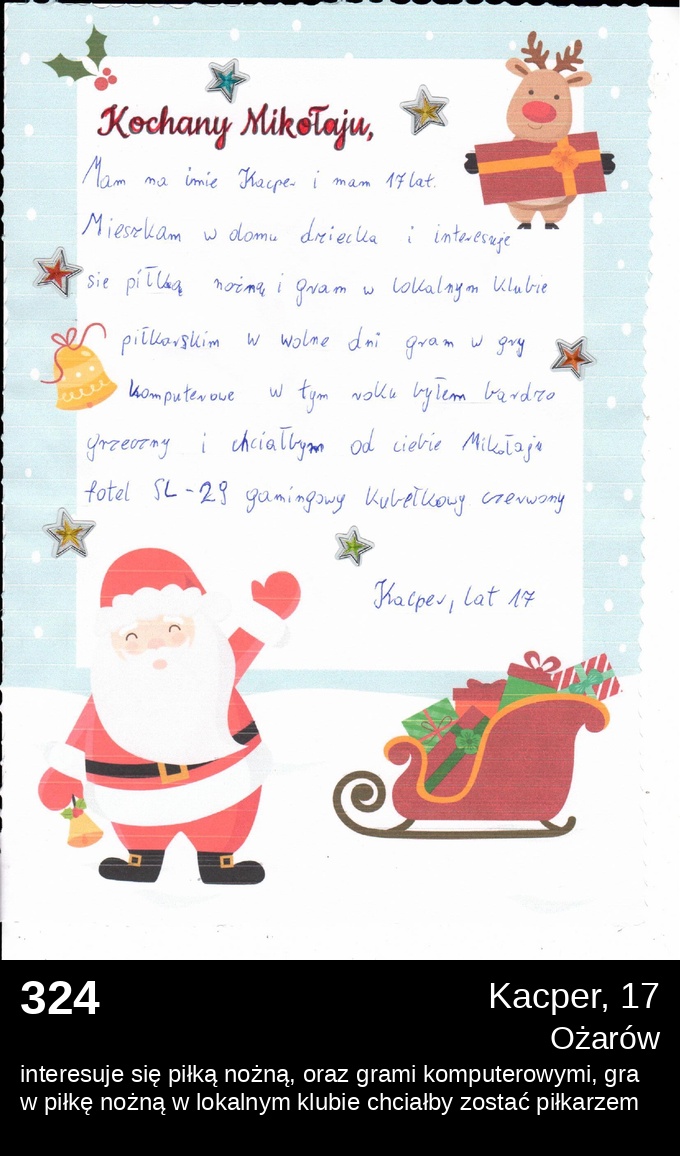 Kochany Mikołaju,
Mam na imie Kacper i mam 17 lat.
Mieszkam w domu dziecka i interesuje
sie piłką nożną i gram w lokalnym klubie
piłkarskim w wolne dni gram w gry
komputerowe w tym roku byłem bardzo
grzeczny i chciałbym od ciebie Mikołaju
fotel SL-29 gamingowy kubełkowy czerwony
Kacper, lat 17
324
Kacper, 17
Ożarów
interesuje się piłką nożną, oraz grami komputerowymi, gra
w piłkę nożną w lokalnym klubie chciałby zostać piłkarzem